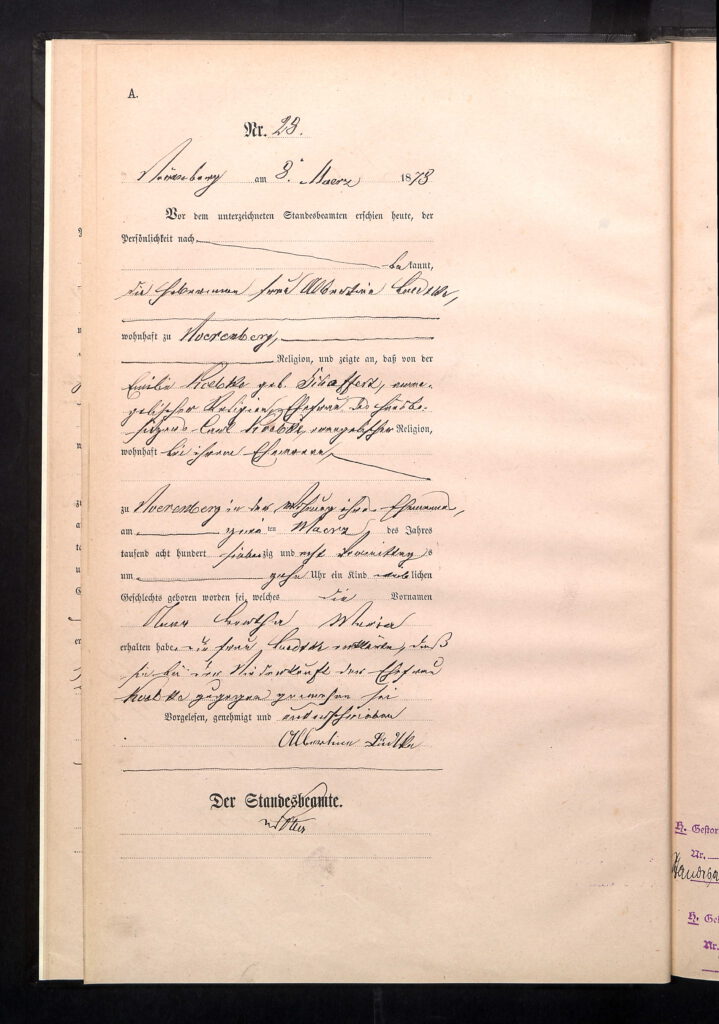 A.
Nr. 23.
Nörenberg am 8. Maerz 1878
Vor dem unterzeichneten Standesbeamten erschien heute, der
Persönlichkeit nach
bekannt,
die Hebamme Frau Albertine Luedtke,
wohnhaft zu Noerenberg,
Religion, und zeigte an, daß von der
Emilie Koebke geb. evan-
gelischer Religion, Ehefrau des Hausbe-
sitzers Carl Koebke, evangelischer Religion,
wohnhaft bei ihrem Ehemanne
zu Noerenberg in der Wohnung ihres Ehemannes,
am zwei ten Maerz des Jahres
tausend acht hundert siebenzig und acht Vormittags
um zehn Uhr ein Kind weiblichen
Geschlechts geboren worden sei, welches die Vornamen
Bertha Maria
erhalten habe. Die Frau Luedtke erklärte, daß
sie bei der Niederkunft der Ehefrau
Koebke zugegen gewesen sei
Vorgelesen, genehmigt und unterschrieben
Albertine Lüdtke
Der Standesbeamte.
H. Gestor
Nr.
H. Ge
Nr.